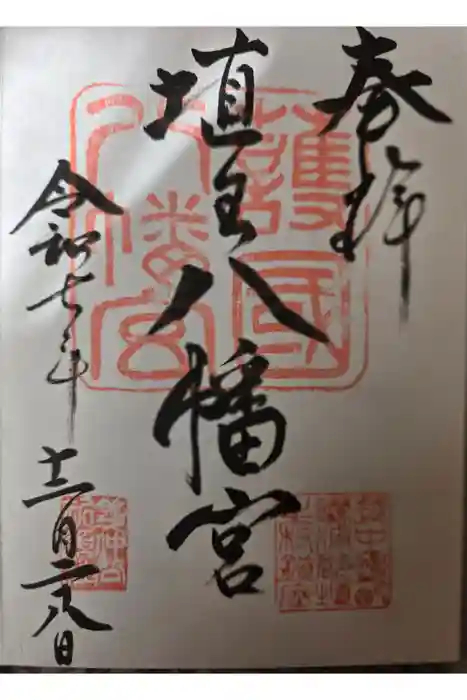 奉拝
護國八幡宮
埴生八幡宮
令和七年
十二月二十八日